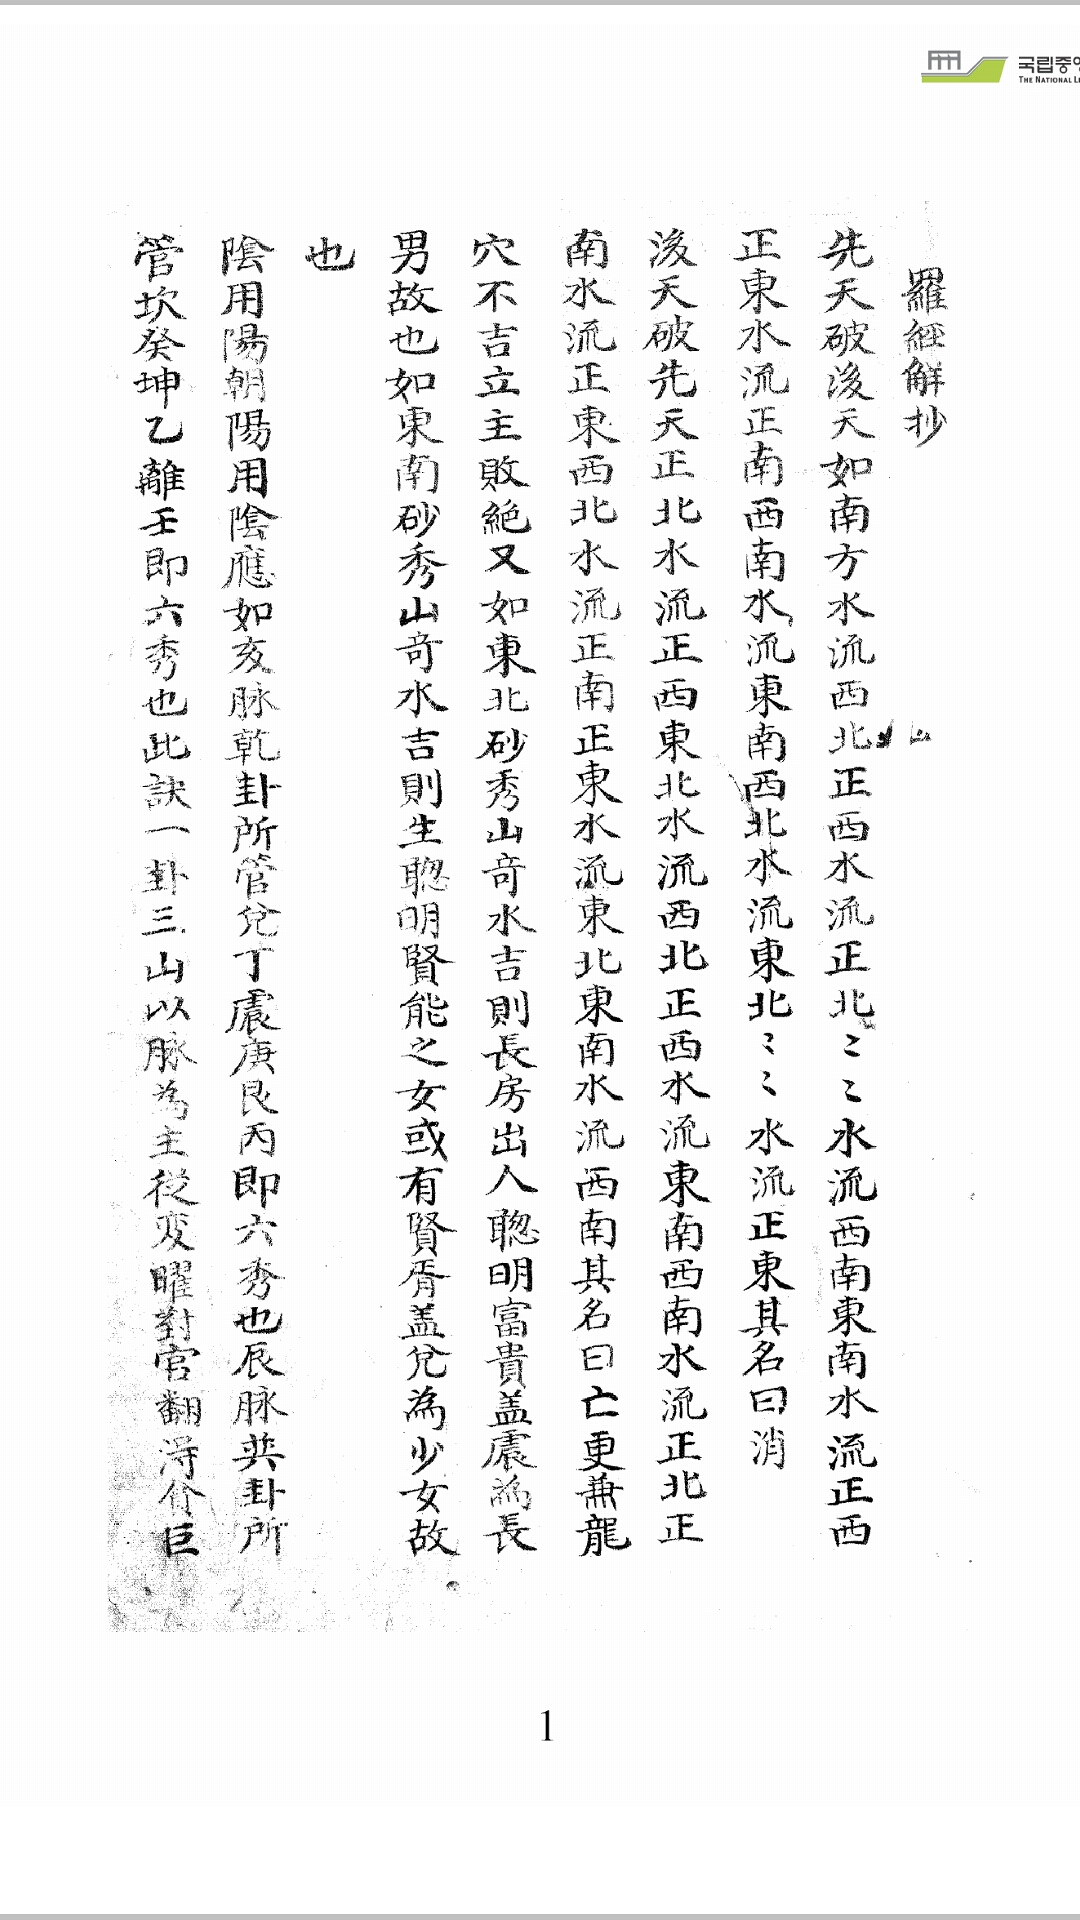 국립중앙
THE NATIONAL LI
羅經解抄
先天破後天如南方水流西北正西水流正北〻〻水流西南東南水流正西
山
正東水流正南西南水流東南西北水流東北〻〻水流正東其名曰消
後天破先天正北水流正西東北水流西北正西水流東南西南水流正北正
南水流正東西北水流正南正東水流東北東南水流西南其名曰亡更兼龍
穴不吉立主敗絶又如東北砂秀山奇水吉則長房出人聰明富貴盖震為長
男故也如東南砂秀山奇水吉則生聰明賢能之女或有賢胥盖兊為少女故
也
陰用陽朝陽用陰應如亥脉乾卦所管兊丁震庚艮丙即六秀也辰脉巽卦所
管坎癸坤乙離壬即六秀也此訣一卦三山以脉為主從変曜對官翻淂介巨
1